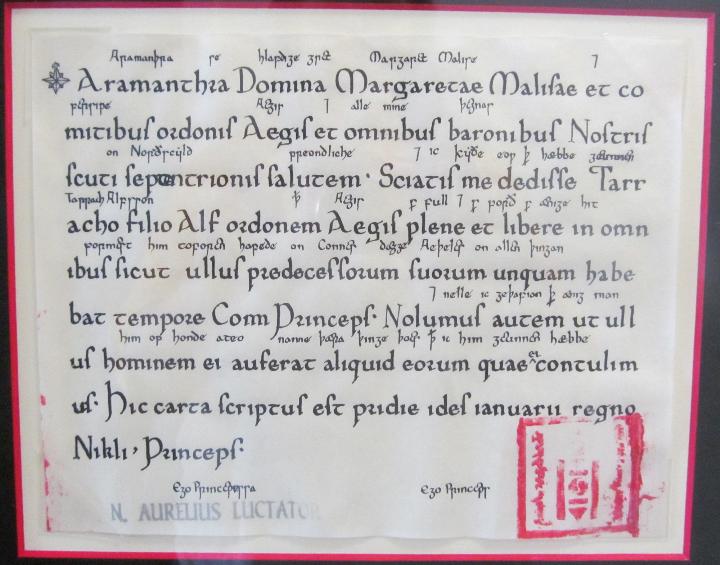 Aramanþra se Margaret Malise ⁊
Aramanthra Domina Margaretae Malisae et co
Aegis ⁊ alle mine þegnas
mitibus ordonis Aegis et omnibus baronibus Nostris
on Norðscyld freondliche ⁊ ic cyðe eow ꝥ hæbbe
scuti septentrionis salutem· Sciatis me dedisse Tarr
Aegis full ⁊ hit
acho filio Alf ordonem Aegis plene et libere in omn
him toforen hafede on Connes dæge Aeþeles on allen þingan
ibus sicut ullus predecessorum suorum unquam habe
⁊ nelle ic geþafian ꝥ æng man
bat tempore Conn Princeps· Nolumus autem ut ull
him of honde ateo nanne þæra þinge þæs ꝥ ic him geunnen hæbbe
us hominem ei auferat aliquid eorum quae et contulim
us· Hic carta scriptus est pridie ides ianuarii regno
Nikli, Princeps·
Ego Princeps
N. AURELIUS LUCTATOR